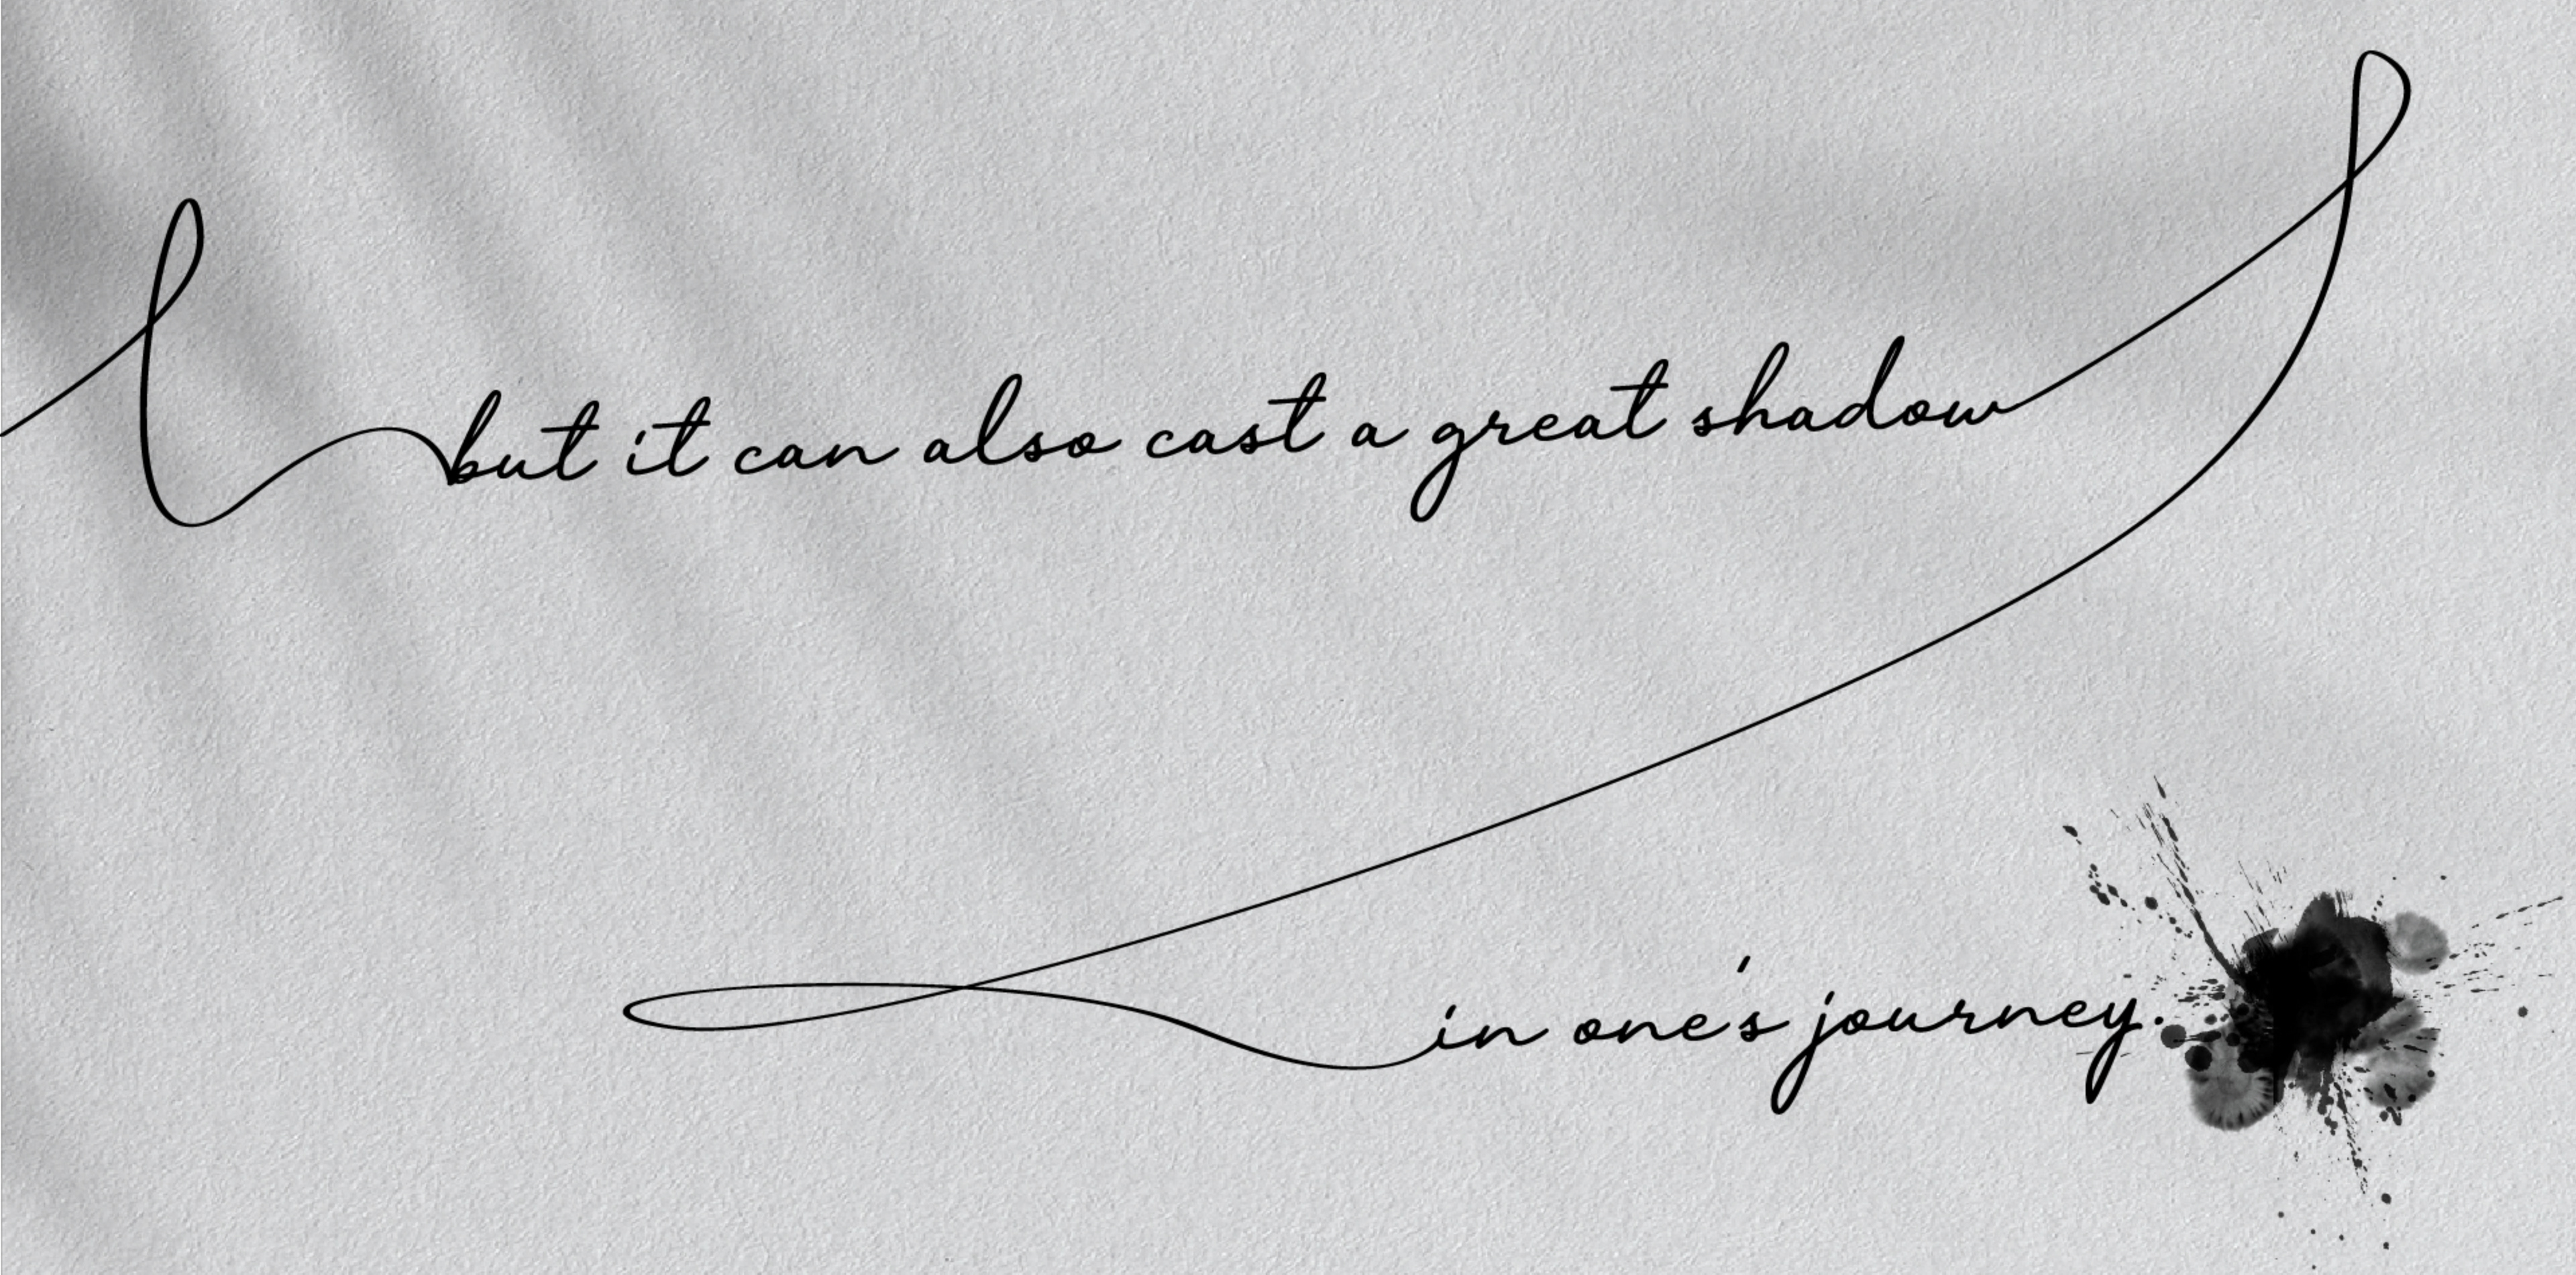 but it can also cast a great shadow
in one's journey.